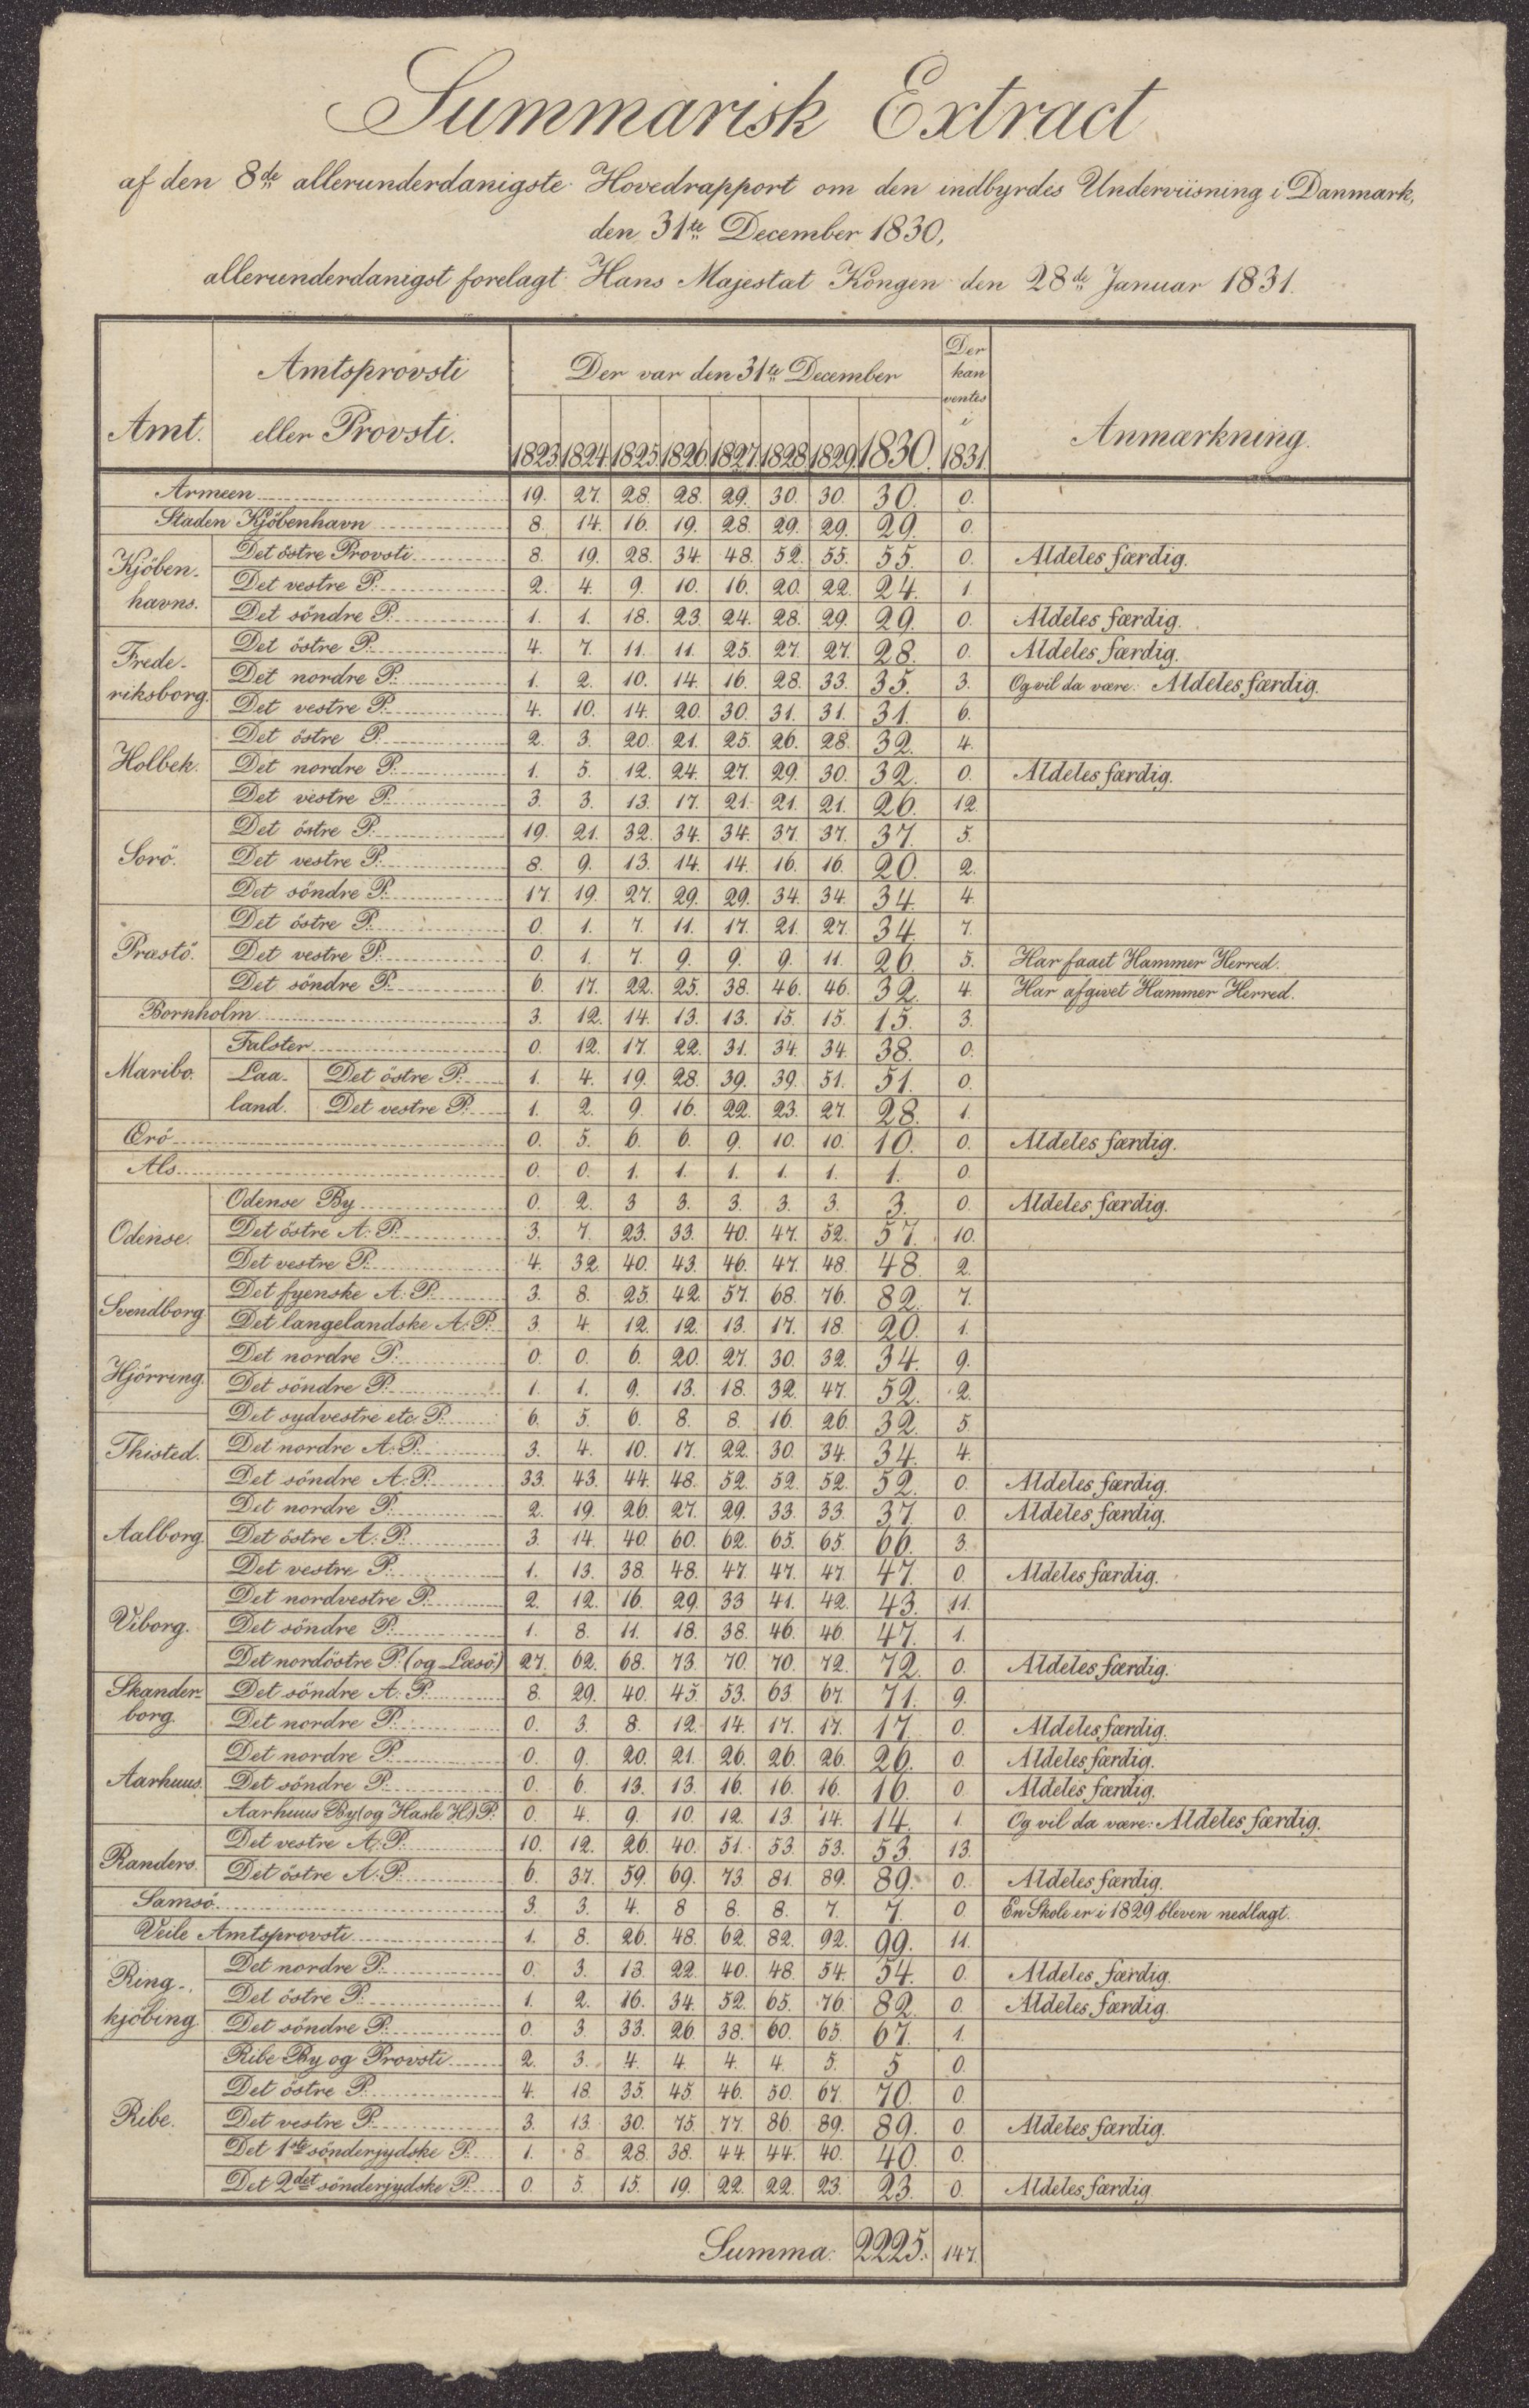 Summarisk Extract
af den 8de allerunderdanigste Hovedrapport om den indbyrdes Underviisning i Danmark,
den 31te December 1830,
allerunderdanigst forelagt Hans Majestæt Kongen den 28de Januar 1831.
Amt. Amtsprovsti eller Provsti. Der var den 31te December Der kan ventes i Anmærkning.
1823. 1824. 1825. 1826. 1827. 1828. 1829. 1830. 1831.
Armeen 19. 27. 28. 28. 29. 30. 30. 30. 0.
Staden Kjöbenhavn 8. 14. 16. 19. 28. 29. 29. 29. 0.
Kjöben-havns. Det östre Provsti 8. 19. 28. 34. 48. 52. 55. 55. 0. Aldeles færdig.
Det vestre P. 2. 4. 9. 10. 16. 20. 22. 24. 1.
Det söndre P. 1. 1. 18. 23. 24. 28. 29. 29. 0. Aldeles færdig.
Frede-riksborg. Det östre P. 4. 7. 11. 11. 25. 27. 27. 28. 0. Aldeles færdig.
Det nordre P. 1. 2. 10. 14. 16. 28. 33. 35. 3. Og vil da være: Aldeles færdig.
Det vestre P. 4. 10. 14. 20. 30. 31. 31. 31. 6.
Holbek. Det östre P. 2. 3. 20. 21. 25. 26. 28. 32. 4.
Det nordre P. 1. 5. 12. 24. 27. 29. 30. 32. 0. Aldeles færdig.
Det vestre P. 3. 3. 13. 17. 21. 21. 21. 26. 12.
Sorö. Det östre P. 19. 21. 32. 34. 34. 37. 37. 37. 5.
Det vestre P. 8. 9. 13. 14. 14. 16. 16. 20. 2.
Det söndre P. 17. 19. 27. 29. 29. 34. 34. 34. 4.
Præstö. Det östre P. 0. 1. 7. 11. 17. 21. 27. 34. 7.
Det vestre P. 0. 1. 7. 9. 9. 9. 11. 26. 5. Har faaet Hammer Herred.
Det söndre P. 6. 17. 22. 25. 38. 46. 46. 32. 4. Har afgivet Hammer Herred.
Bornholm 3. 12. 14. 13. 13. 15. 15. 15. 3.
Maribo. Falster 0. 12. 17. 22. 31. 34. 34. 38. 0.
Laa-land. Det östre P. 1. 4. 19. 28. 39. 39. 51. 51. 0.
Det vestre P. 1. 2. 9. 16. 22. 23. 27. 28. 1.
Ærö 0. 5. 6. 6. 9. 10. 10. 10. 0. Aldeles færdig.
Als 0. 0. 1. 1. 1. 1. 1. 1. 0.
Odense. Odense By 0. 2. 3 3. 3. 3. 3. 3. 0. Aldeles færdig.
Det östre A: P. 3. 7. 23. 33. 40. 47. 52. 57. 10.
Det vestre P. 4. 32. 40. 43. 46. 47. 48. 48. 2.
Svendborg. Det fyenske A: P. 3. 8. 25. 42. 57. 68. 76. 82. 7.
Det langelandske A: P. 3. 4. 12. 12. 13. 17. 18. 20. 1.
Hjörring. Det nordre P. 0. 0. 6. 20. 27. 30. 32. 34. 9.
Det söndre P. 1. 1. 9. 13. 18. 32. 47. 52. 2.
Det sydvestre etc. P. 6. 5. 6. 8. 8. 16. 26. 32. 5.
Thisted. Det nordre A: P. 3. 4. 10. 17. 22. 30. 34. 34. 4.
Det söndre A: P. 33. 43. 44. 48. 52. 52. 52. 52. 0. Aldeles færdig.
Aalborg. Det nordre P. 2. 19. 26. 27. 29. 33. 33. 37. 0. Aldeles færdig.
Det östre A: P. 3. 14. 40. 60. 62. 65. 65. 66. 3.
Det vestre P. 1. 13. 38. 48. 47. 47. 47. 47. 0. Aldeles færdig.
Viborg. Det nordvestre P. 2. 12. 16. 29. 33 41. 42. 43. 11.
Det söndre P. 1. 8. 11. 18. 38. 46. 46. 47. 1.
Det nordöstre P. (og Læsö) 27. 62. 68. 73. 70. 70. 72. 72. 0. Aldeles færdig.
Skander-borg. Det söndre A: P. 8. 29. 40. 45. 53. 63. 67. 71. 9.
Det nordre P. 0. 3. 8. 12. 14. 17. 17. 17. 0. Aldeles færdig.
Aarhuus. Det nordre P. 0. 9. 20. 21. 26. 26. 26. 26. 0. Aldeles færdig.
Det söndre P. 0. 6. 13. 13. 16. 16. 16. 16. 0. Aldeles færdig.
Aarhuus By (og Hasle H.) P. 0. 4. 9. 10. 12. 13. 14. 14. 1. Og vil da være: Aldeles færdig.
Randers. Det vestre A: P. 10. 12. 26. 40. 51. 53. 53. 53. 13.
Det östre A: P. 6. 37. 59. 69. 73 81. 89. 89. 0. Aldeles færdig.
Samsö 3. 3. 4. 8 8. 8. 7. 7. 0. En Skole er i 1829 bleven nedlagt.
Veile Amtsprovsti 1. 8. 26. 48. 62. 82. 92. 99. 11.
Ring-kjöbing. Det nordre P. 0. 3. 13. 22. 40. 48. 54. 54. 0. Aldeles færdig.
Det östre P. 1. 2. 16. 34. 52. 65. 76. 82. 0. Aldeles færdig.
Det söndre P. 0. 3. 33. 26. 38. 60. 65. 67. 1.
Ribe. Ribe By og Provsti 2. 3. 4. 4. 4. 4. 5. 5 0.
Det östre P. 4. 18. 35. 45. 46. 50. 67. 70. 0.
Det vestre P. 3. 13. 30. 75. 77. 86. 89. 89. 0. Aldeles færdig.
Det 1ste sönderjydske P. 1. 8. 28. 38. 44. 44. 40. 40. 0.
Det 2det sönderjydske P. 0. 5. 15. 19. 22. 22. 23. 23. 0. Aldeles færdig.
Summa: 2225. 147.